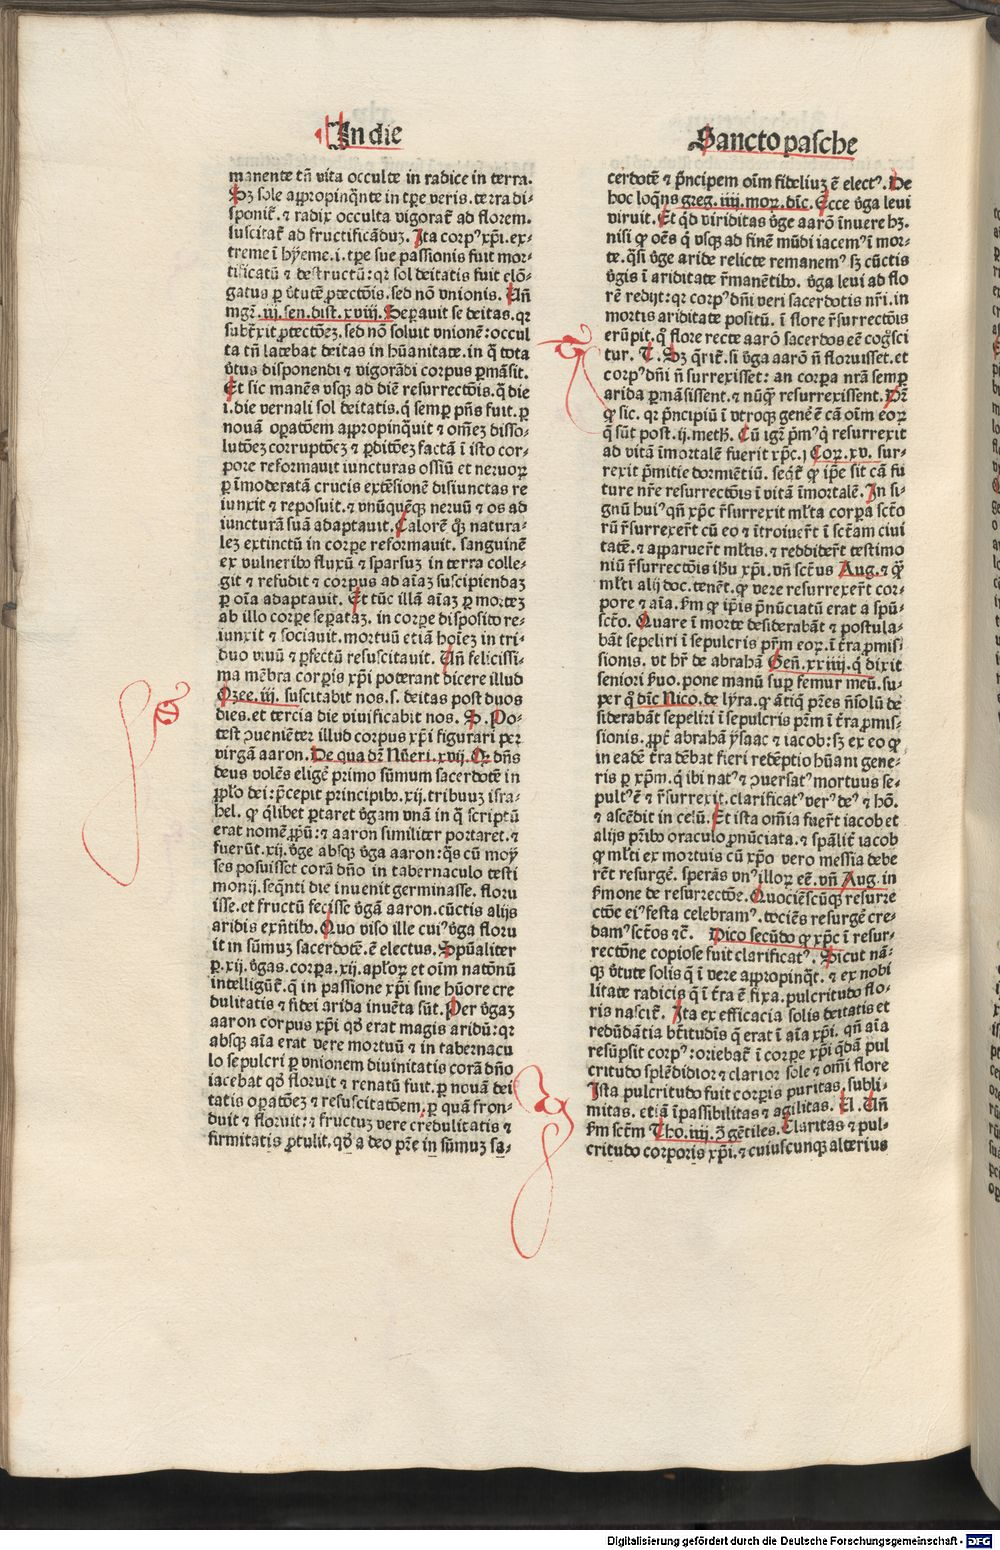 In die
Sancto pasche
manente tñ vita occulte in radice in terra.
Sꝫ sole appropinq̃nte in tꝑe veris. terra di⸗
sponit̃. ⁊ radix occulta vigorat̃ ad florem.
suscitat̃ ad fructificãduꝫ. Ita corpꝰ xp̃i. ex⸗
treme ĩ hyeme .i. tꝑe sue passionis fuit mor⸗
tificatũ ⁊ destructũ: qꝛ sol deitatis fuit elõ⸗
gatus ꝑ v̾tutẽ ꝓtectõis. sed nõ vnionis. Uñ
mgr̃. iij. sen. dist. xviij. Seꝑauit se deitas. qꝛ
subt̾xit ꝓtectõeꝫ. sed nõ soluit vnionẽ: occul
ta tñ latebat deitas in hũanitate. in q̃ tota
v̾tus disponendi ⁊ vigorãdi corpus ꝑmãsit.
Et sic manẽs vsqꝫ ad diẽ resurrectõis. q̃ die
.i. die vernali sol deitatis. q̃ semꝑ pñs fuit. ꝑ
nouã oꝑatõem appropinq̃uit ⁊ om̃eꝫ disso⸗
lutõeꝫ corruptõeꝫ ⁊ ꝑditõeꝫ factã ĩ isto cor⸗
pore reformauit iuncturas ossiũ et neruoꝝ
ꝑ ĩmoderatã crucis extẽsionẽ disiunctas re
iunxit ⁊ reposuit. ⁊ vnũquẽqꝫ neruũ ⁊ os ad
iuncturã suã adaptauit. Calorẽ qꝫ natura⸗
leꝫ extinctũ in corꝑe reformauit. sanguinẽ
ex vulneribꝰ fluxũ ⁊ sparsuꝫ in terra colle⸗
git ⁊ refudit ⁊ corpus ad aĩaꝫ suscipiendaꝫ
ꝑ oĩa adaptauit. Et tũc illã aĩaꝫ ꝑ morteꝫ
ab illo corꝑe seꝑataꝫ. in corꝑe disposito re⸗
iunxit ⁊ sociauit. mortuũ etiã hoĩeꝫ in tri⸗
duo viuũ ⁊ ꝑfectũ resuscitauit. Uñ felicissi⸗
ma mẽbra corꝑis xp̃i poterant dicere illud
Ozee. iij. suscitabit nos. s. deitas post duos
dies. et tercia die viuificabit nos. S. Po⸗
test ꝯueniẽter illud corpus xp̃i figurari per
virgã aaron. De qua dꝛ̃ Nũeri. xvij. Qꝛ dñs
deus volẽs eligẽ primo sũmum sacerdotẽ in
ꝓplo dei: p̃cepit principibꝰ. xij. tribuuꝫ isra⸗
hel. ꝙ q̃libet ꝑtaret v̾gam vnã in q̃ scriptũ
erat nomẽ ꝓpũ: ⁊ aaron similiter portaret. ⁊
fuerũt. xij. v̾ge absqꝫ v̾ga aaron: q̃s cũ moy
ses posuisset corã dño in tabernaculo testi
monij. seq̃nti die inuenit germinasse. floru
isse. et fructũ fecisse v̾gã aaron. cũctis alijs
aridis exñtibꝰ. Quo viso ille cuiꝰ v̾ga floru
it in sũmuꝫ sacerdotẽ. ẽ electus. Spũaliter
ꝑ. xij. v̾gas. corꝑa. xij. apl̃oꝝ et oĩm natõnũ
intelligũt̃. q̃ in passione xp̃i sine hũore cre
dulitatis ⁊ fidei arida inuẽta sũt. Per v̾gaꝫ
aaron corpus xp̃i qđ erat magis aridũ: qꝛ
absqꝫ aĩa erat vere mortuũ ⁊ in tabernacu
lo sepulcri ꝑ vnionem diuinitatis corã dño
iacebat qđ floruit ⁊ renatũ fuit. ꝑ nouã dei
tatis oꝑatõeꝫ ⁊ resuscitatõem. ꝑ quã fron⸗
duit ⁊ floruit: ⁊ fructuꝫ vere credulitatis ⁊
firmitatis ꝓtulit. qđ a deo pr̃e in sũmuꝫ sa⸗
cerdotẽ ⁊ p̃ncipem oĩm fideliuꝫ ẽ electꝰ. De
hoc loq̃ns greg. iiij. moꝝ. dĩc. Ecce v̾ga leui
viruit. Et q̃d viriditas v̾ge aarõ ĩnuere hꝫ.
nisi ꝙ oẽs q̃ vsqꝫ ad finẽ mũdi iacemꝰ ĩ mor⸗
te. q̃si v̾ge aride relicte remanemꝰ sꝫ cũctis
v̾gis ĩ ariditate r̃manẽtibꝰ. v̾ga leui ad flo
rẽ redijt: qꝛ corpꝰ dñi veri sacerdotis nr̃i. in
mortis ariditate positũ. ĩ flore r̃surrectõis
erũpit. q̃ flore recte aarõ sacerdos eẽ cog̃sci
tur. T. Sꝫ q̃rit̃. si v̾ga aarõ ñ floruisset. et
corpꝰ dñi ñ surrexisset: an corꝑa nrã semꝑ
arida ꝑmãsissent. ⁊ nũq̃ resurrexissent. Dꝛ̃
ꝙ sic. qꝛ p̃ncipiũ ĩ vtroqꝫ genẽ ẽ cã oĩm eoꝝ
q̃ sũt post. ij. meth̃. Cũ igr̃ p̃mꝰ q̃ resurrexit
ad vitã ĩmortalẽ fuerit xp̃c. j Coꝝ. xv. sur⸗
rexit p̃mitie dormiẽtiũ. seq̃t̃ ꝙ ip̃e sit cã fu
ture nr̃e resurrectõis ĩ vitã ĩmortalẽ. In si⸗
gnũ huiꝰ qñ xp̃c r̃surrexit ml̃ta corꝑa sctõ
rũ r̃surrexer̃t cũ eo ⁊ ĩtroiuer̃t ĩ sct̃am ciui
tatẽ. ⁊ apparuer̃t ml̃tis. ⁊ reddider̃t testimo
niũ r̃surrectõis ih̃u xp̃i. vñ sct̃us Aug. ⁊ q̃ꝫ
ml̃ti alij doc. tenẽt. ꝙ vere resurrexer̃t cor⸗
pore ⁊ aĩa. km̃ ꝙ ip̃is p̃nũciatũ erat a spũ⸗
sctõ. Quare ĩ morte desiderabãt ⁊ postula⸗
bãt sepeliri ĩ sepulcris pr̃m eoꝝ. ĩ t̾ra ꝓmis⸗
sionis. vt hr̃ de abrahã Geñ. xxiiij. q̃ dixit
seniori ẜuo. pone manũ suꝑ femur meũ. su⸗
per q̃ dĩc Nico. de lyra. ꝙ ãtiq̃ pr̃es ñsolũ de
siderabãt sepeliri ĩ sepulcris pr̃m ĩ t̾ra ꝓmis⸗
sionis. ꝓpt̃ abrahã ysaac ⁊ iacob: sꝫ ex eo ꝙ
in eadẽ t̾ra debat fieri redẽptio hũani gene⸗
ris ꝑ xp̃m. q̃ ibi natꝰ ⁊ ꝯuersatꝰ mortuus se⸗
pultꝰ ẽ ⁊ r̃surrexit. clarificatꝰ verꝰ deꝰ ⁊ hõ.
⁊ ascẽdit in celũ. Et ista om̃ia fuer̃t iacob et
alijs pr̃ibꝰ oraculo ꝓnũciata. ⁊ spãlit̃ iacob
ꝙ ml̃ti ex mortuis cũ xp̃o vero messia debe
rẽt resurgẽ. sperãs vnꝰ illoꝝ eẽ. vñ Aug. in
ẜmone de resurrectõe. Quociẽscũqꝫ resurre
ctõe eiꝰ festa celebramꝰ. tociẽs resurgẽ cre⸗
damꝰ sct̃os ⁊c̃. Dico secũdo ꝙ xp̃c ĩ resur⸗
rectõne copiose fuit clarificatꝰ. Sicut nã⸗
qꝫ v̾tute solis q̃ ĩ vere appropinq̃t. ⁊ ex nobi
litate radicis q̃ ĩ t̾ra ẽ fixa. pulcritudo flo⸗
ris nascit̃. Ita ex efficacia solis deitatis et
redũdãtia bt̃itudis q̃ erat ĩ aĩa xp̃i. qñ aĩa
resũpsit corpꝰ: oriebat̃ ĩ corꝑe xp̃i q̃dã pul
critudo splẽdidior ⁊ clarior sole ⁊ om̃i flore
Ista pulcritudo fuit corꝑis puritas, subli⸗
mitas. etiã ĩpassibilitas ⁊ agilitas. El. Uñ
km̃ sct̃m Tho. iiij. ꝯ gẽtiles. Claritas ⁊ pul⸗
critudo corporis xp̃i. ⁊ cuiuscunqꝫ alterius
Digitalisierung gefördert durch die Deutsche Forschungsgemeinschaft - DFG